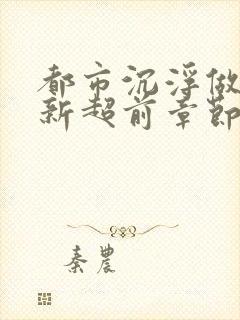 都市沉浮做
新超前章節
秦農